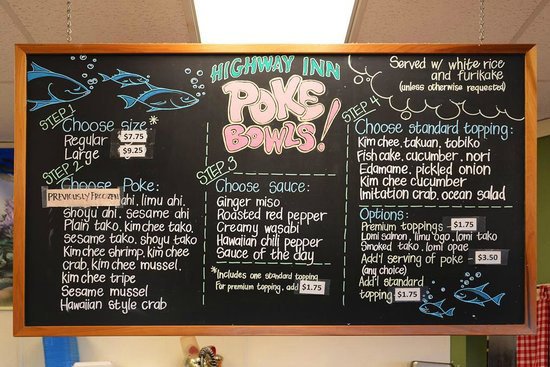 HIGHWAY INN
POKE
BOWLS!
STEP 1
Choose size*
Regular $7.75
Large $9.25
STEP 2
Choose Poke:
PREVIOUSLY FROZEN
ahi, limu ahi,
Shoyu ahi, sesame ahi
Plain tako, kim chee tako,
sesame tako, shoyu tako
Kim chee shrimp, kim chee
crab, kim chee mussel,
Kim chee tripe
Sesame mussel
Hawaiian style crab
STEP 3
Choose sauce:
Ginger miso
Roasted red pepper
Creamy wasabi
Hawaiian chili pepper
Sauce of the day
*Includes one standard topping
For premium topping, add $1.75
Served w/ white rice
and furikake
(unless otherwise requested)
STEP 4
Choose standard topping:
Kim chee, takuan, tobiko
Fish cake, cucumber, nori
Edamame, pickled onion
Kim chee cucumber
Imitation crab, ocean salad
Options:
Premium toppings - $1.75
Lomi salmon, limu ogo, lomi tako
Smoked tako, lomi opae
Add'l serving of poke - $3.50
(any choice)
Add'l standard
topping $1.75